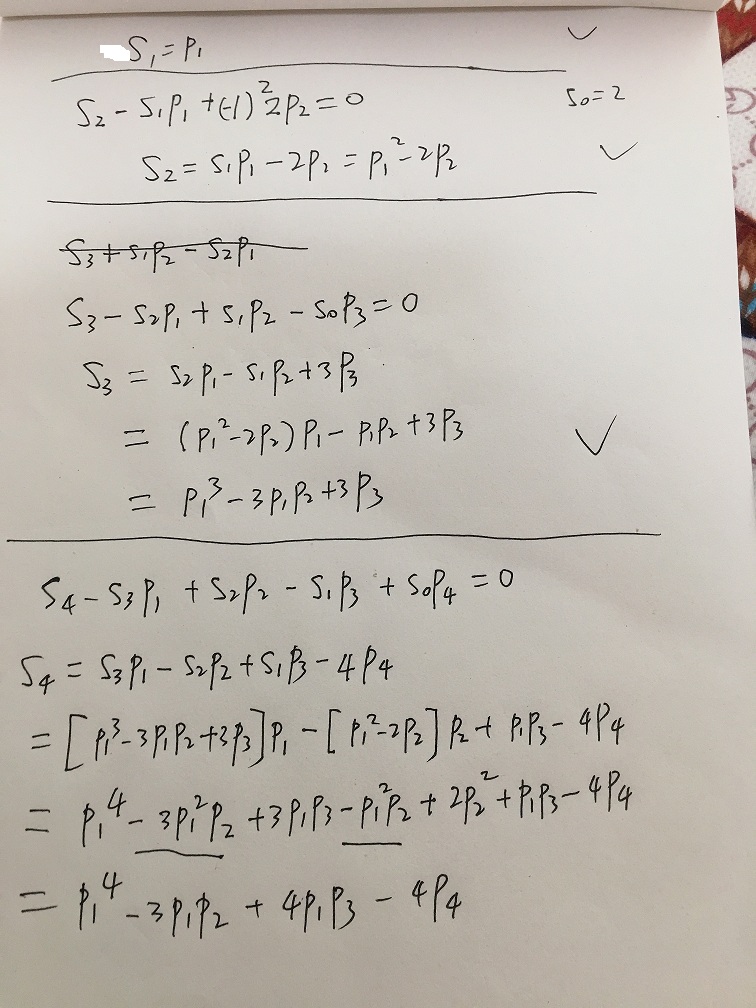 S₁ = p₁
S₂ - S₁p₁ + (-1)² 2p₂ = 0
S₀ = 2
S₂ = S₁p₁ - 2p₂ = p₁² - 2p₂
S₃ + S₁p₂ - S₂p₁
S₃ - S₂p₁ + S₁p₂ - S₀p₃ = 0
S₃ = S₂p₁ - S₁p₂ + 3p₃
= (p₁² - 2p₂)p₁ - p₁p₂ + 3p₃
= p₁³ - 3p₁p₂ + 3p₃
S₄ - S₃p₁ + S₂p₂ - S₁p₃ + S₀p₄ = 0
S₄ = S₃p₁ - S₂p₂ + S₁p₃ - 4p₄
= [p₁³ - 3p₁p₂ + 3p₃]p₁ - [p₁² - 2p₂]p₂ + p₁p₃ - 4p₄
= p₁⁴ - 3p₁²p₂ + 3p₁p₃ - p₁²p₂ + 2p₂² + p₁p₃ - 4p₄
= p₁⁴ - 3p₁p₂ + 4p₁p₃ - 4p₄